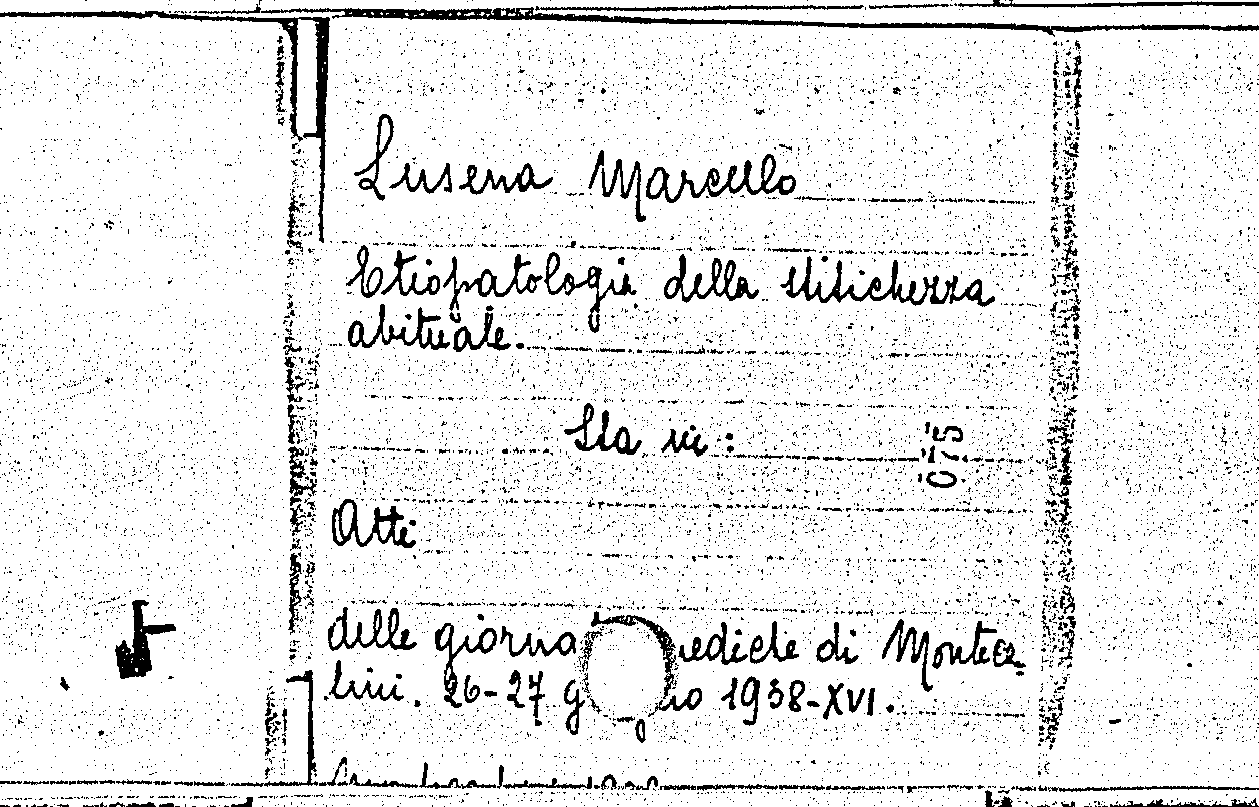 Lusena Marcello
Etiopatologia della stitichezza
abituale.
Sta in:
075
Atti
delle giorna ediche di Monteca
tini. 26-27 g no 1938-XVI.